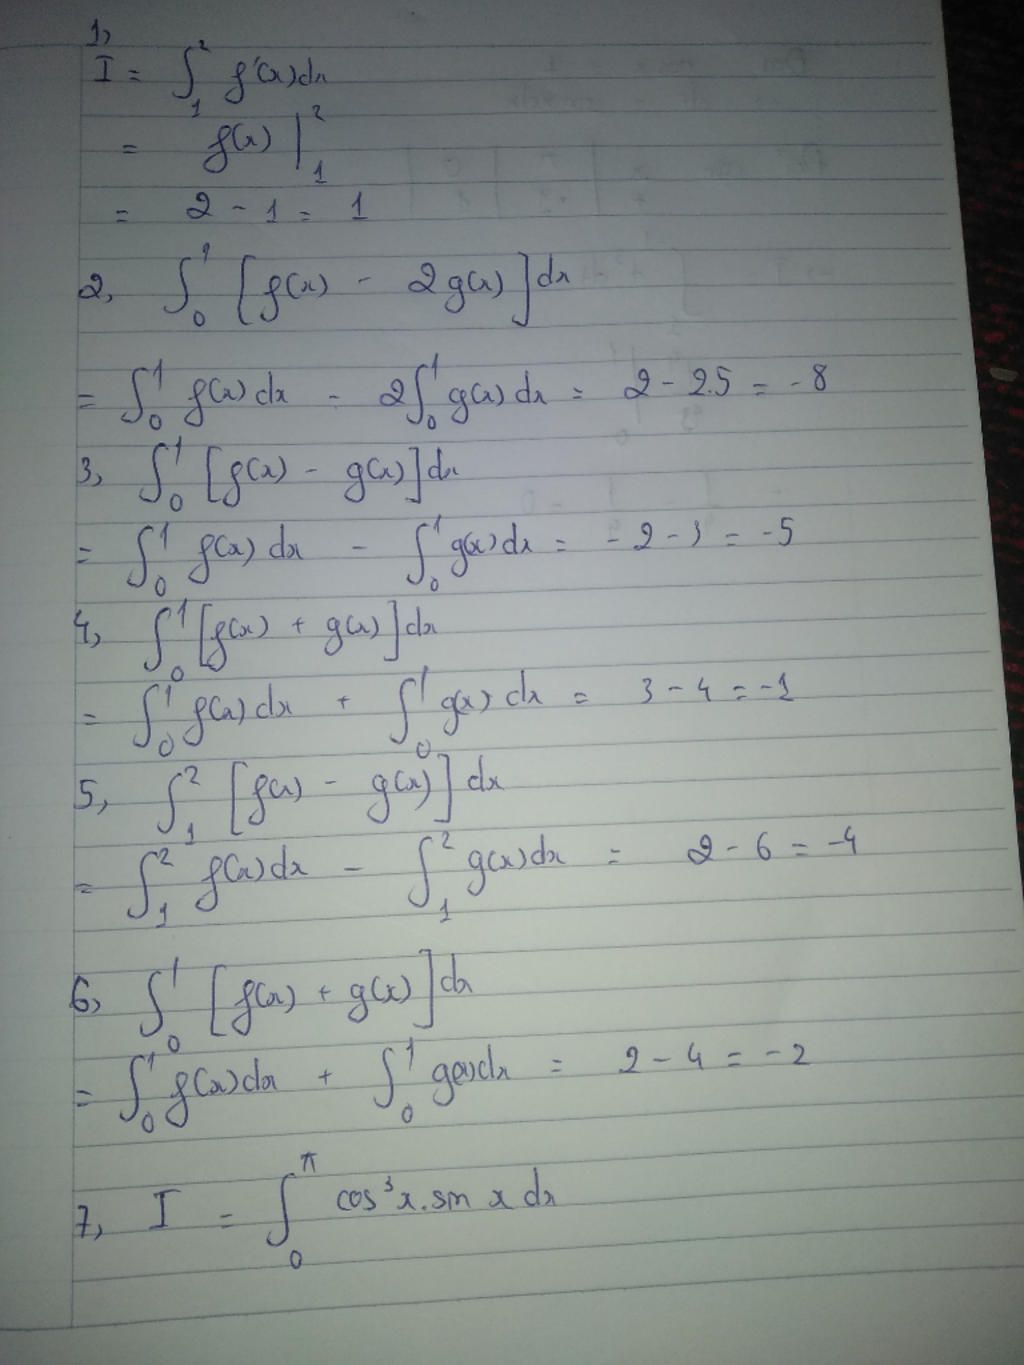 1,
I = ∫₁² f'(x)dx
= f(x) |₁²
= 2 - 1 = 1
2, ∫₀¹ [f(x) - 2g(x)]dx
= ∫₀¹ f(x)dx - 2∫₀¹ g(x)dx = 2 - 2.5 = -8
3, ∫₀¹ [f(x) - g(x)]dx
= ∫₀¹ f(x)dx - ∫₀¹ g(x)dx = -2 - 3 = -5
4, ∫₀¹ [f(x) + g(x)]dx
= ∫₀¹ f(x)dx + ∫₀¹ g(x)dx = 3 - 4 = -1
5, ∫₁² [f(x) - g(x)]dx
= ∫₁² f(x)dx - ∫₁² g(x)dx = 2 - 6 = -4
6, ∫₀¹ [f(x) + g(x)]dx
= ∫₀¹ f(x)dx + ∫₀¹ g(x)dx = 2 - 4 = -2
7, I = ∫₀^π cos³x.sin x dx